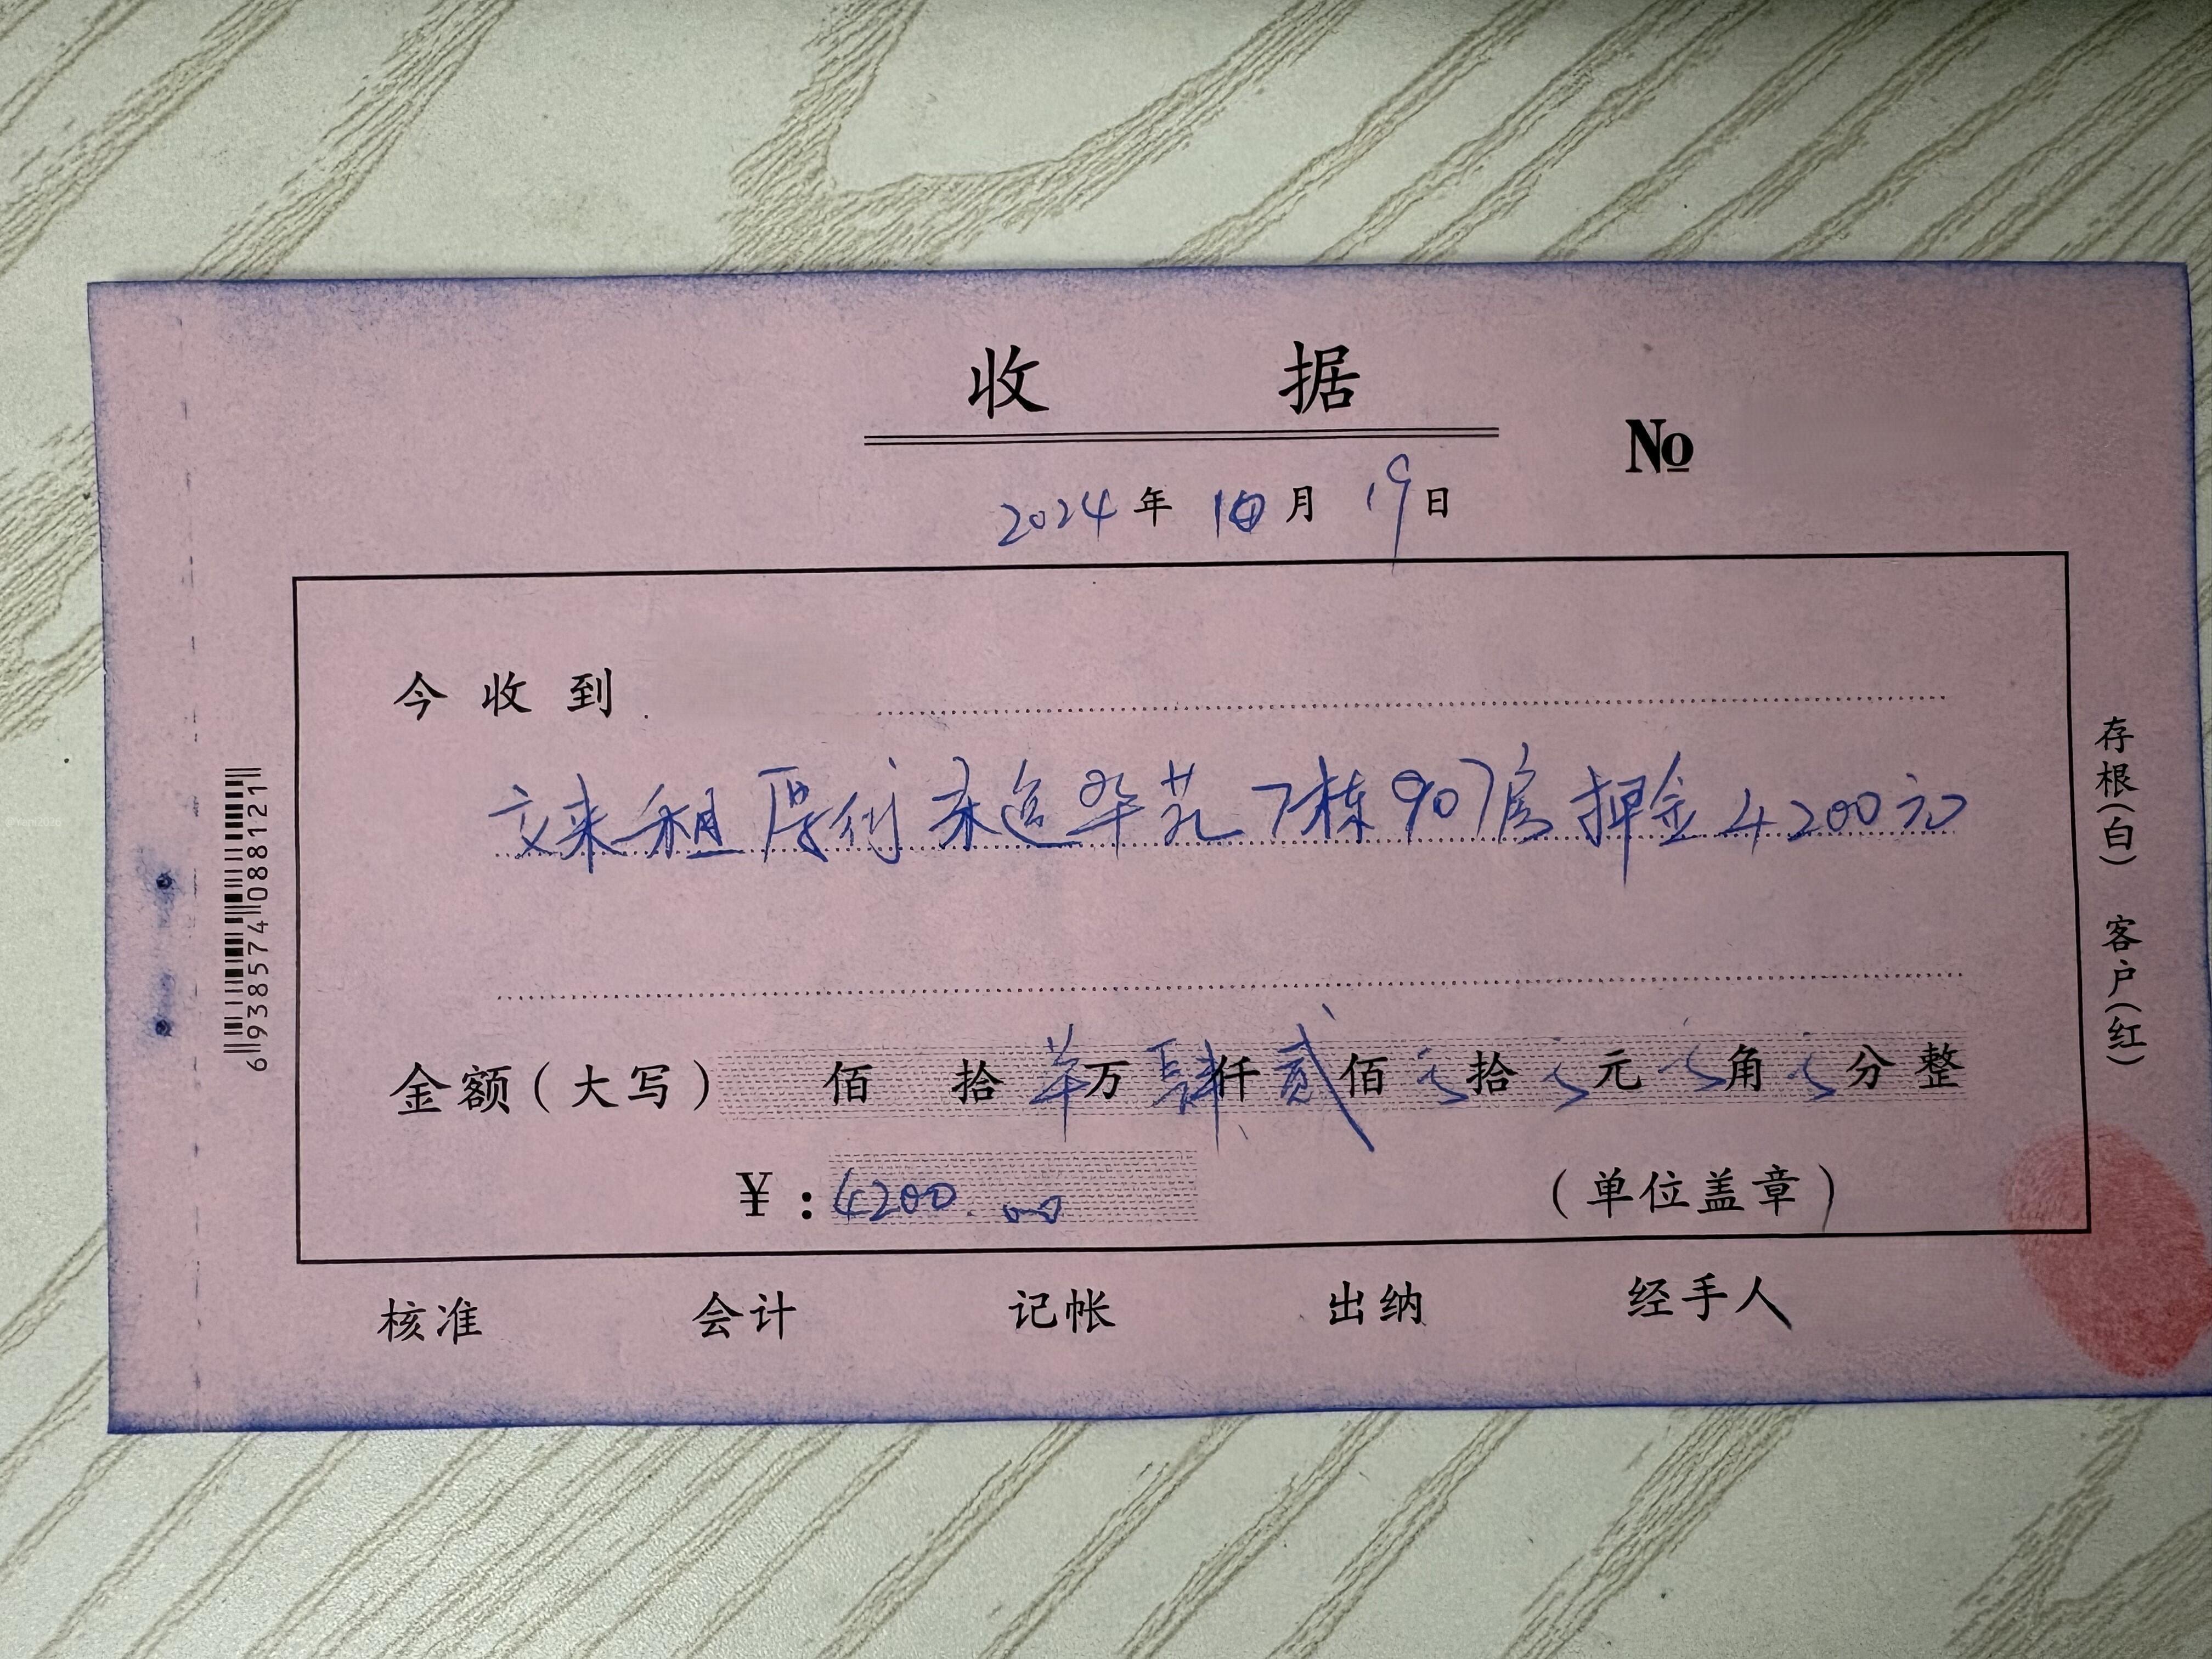 收 据
No
2024年 10月 19日
今收到
交来租厚街东逸华苑7栋907房押金4200元
金额(大写) 佰 拾 萬万 肆仟 贰佰 零拾 零元 零角 零分整
¥:4200.00
(单位盖章)
核准 会计 记帐 出纳 经手人
存根(白) 客户(红)
6938574088121